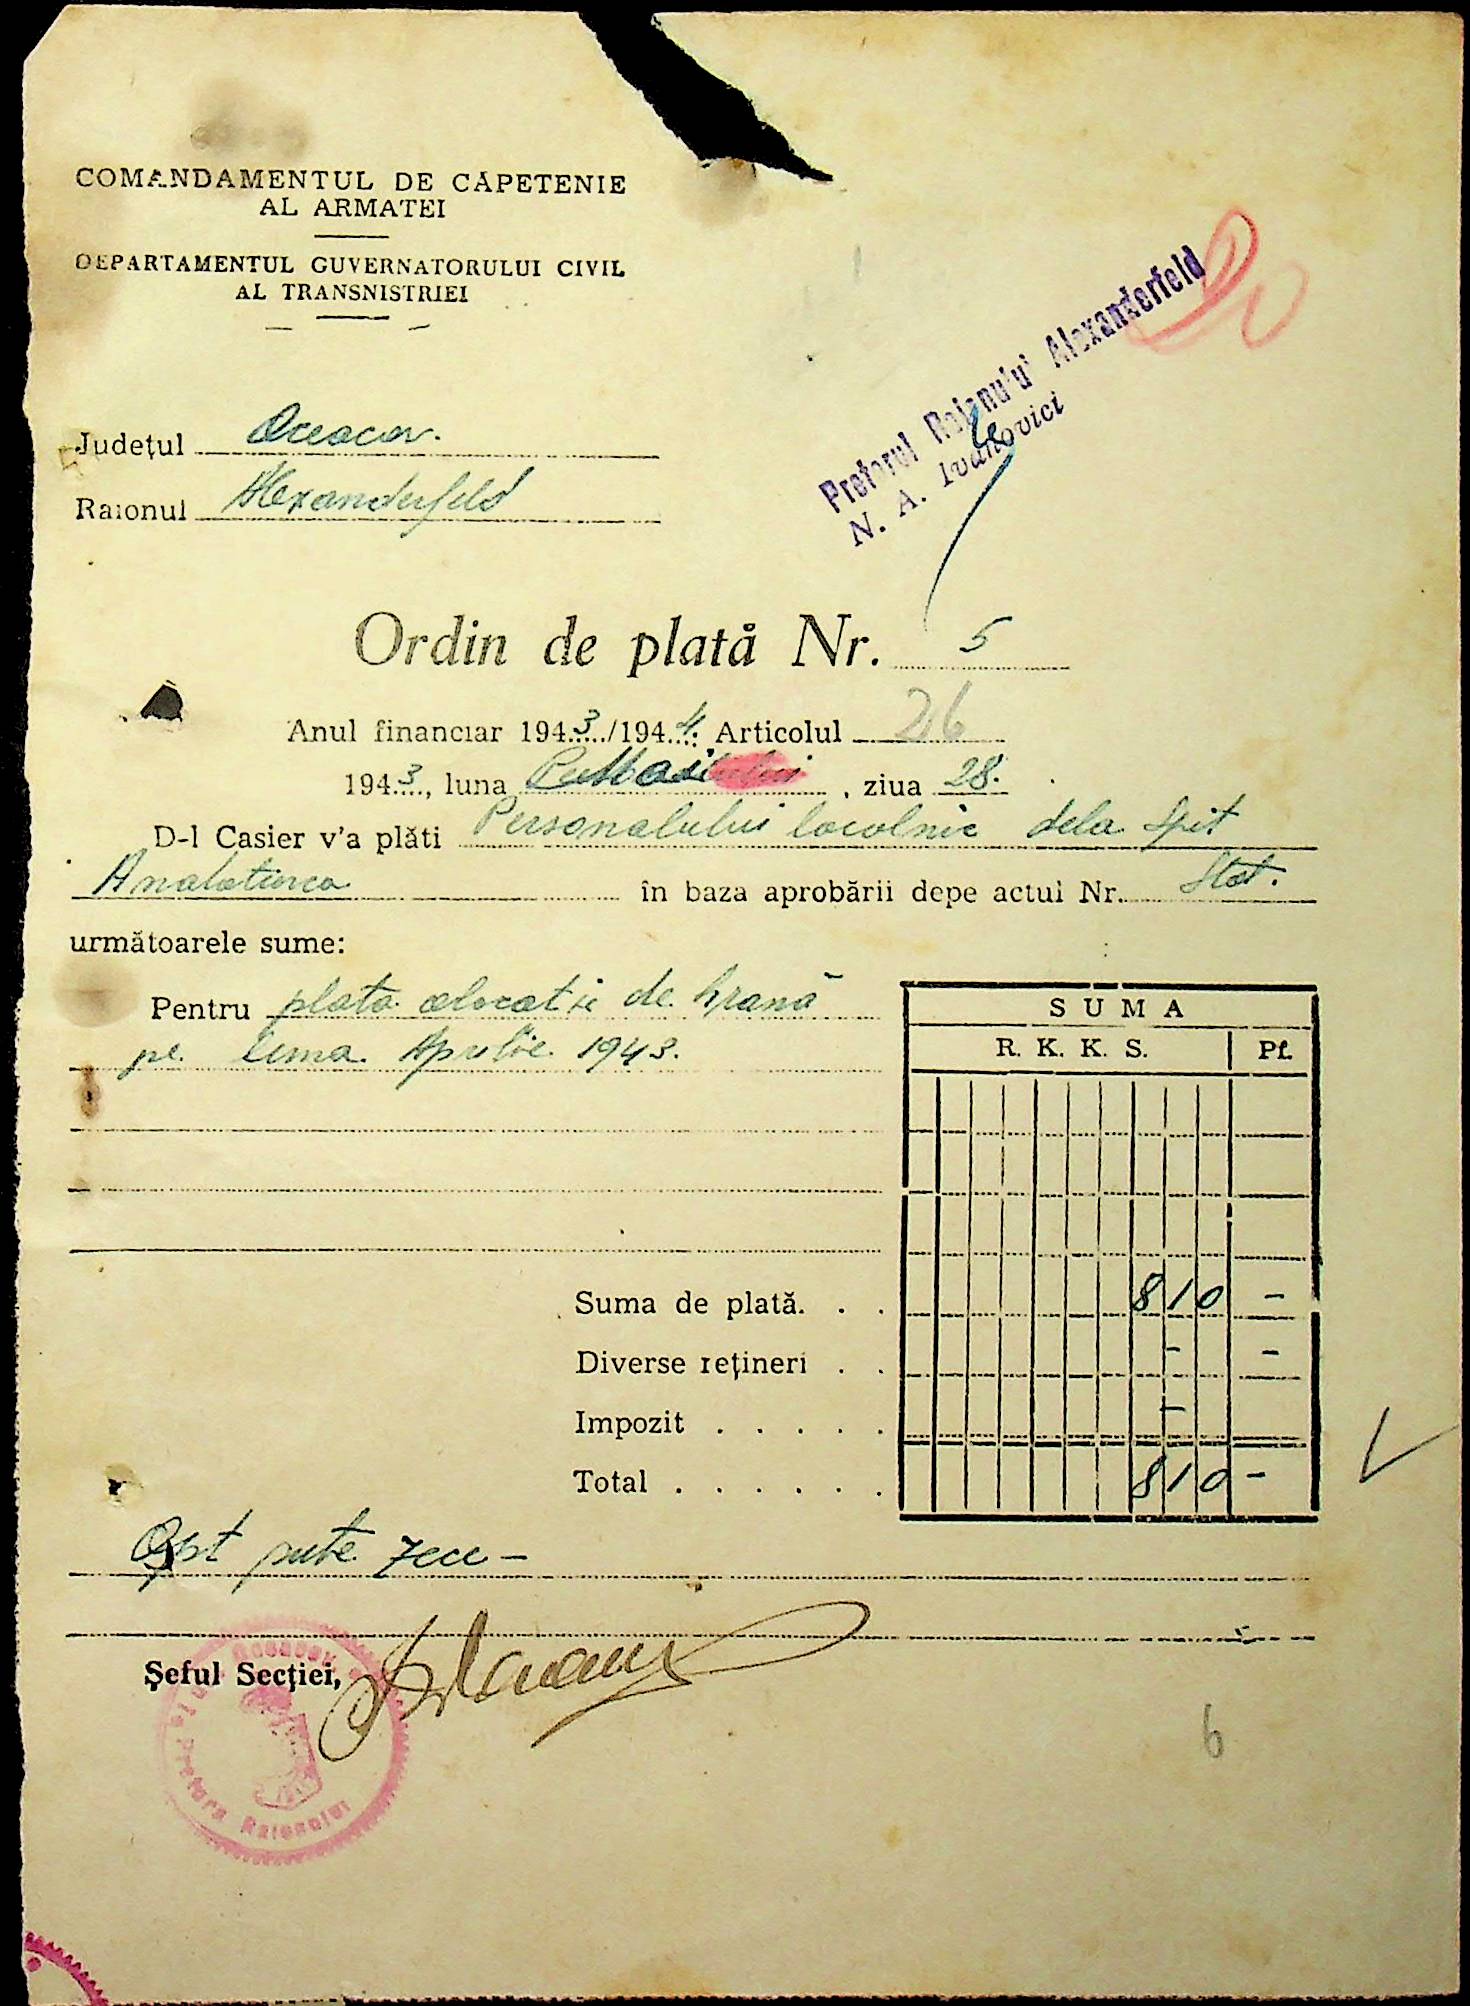 COMANDAMENTUL DE CĂPETENIE
AL ARMATEI
DEPARTAMENTUL GUVERNATORULUI CIVIL
AL TRANSNISTRIEI
Pretorul Raionului Alexanderfeld
N. A. Ivanovici
Județul Oceacov.
Raionul Alexanderfeld
Ordin de plată Nr. 5
Anul financiar 1943/1944. Articolul 26
1943, luna , ziua 28.
D-l Casier v'a plăti Personalului localnic dela Spit
în baza aprobării depe actul Nr. Stat.
următoarele sume:
Pentru plata alocatie de hrană
pe luna Aprilie 1943.
SUMA
R. K. K. S. Pf.
Suma de plată. . . 810 -
Diverse rețineri . . - -
Impozit . . . . . -
Total . . . . . . 810 -
Opt sute zece -
Șeful Secției,
Pretura Raionului
6